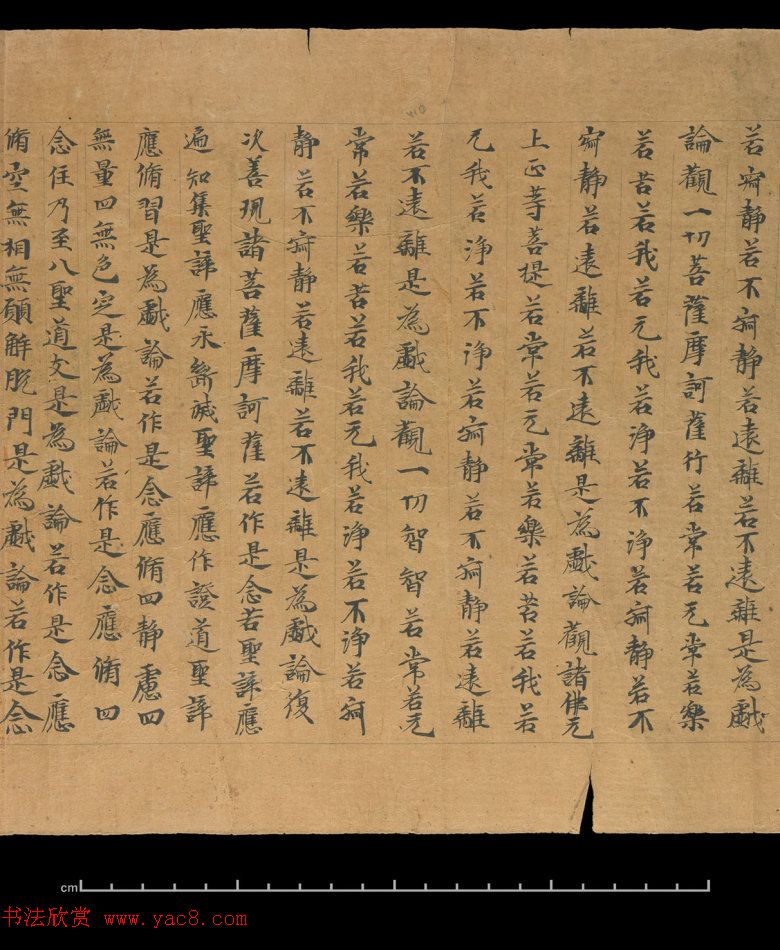 若寂静若不寂静若遠離若不遠離是為戲
論觀一切菩薩摩訶薩行若常若无常若樂
若苦若我若无我若淨若不淨若寂静若不
寂静若遠離若不遠離是為戲論觀諸佛无
上正等菩提若常若无常若樂若苦若我若
无我若淨若不淨若寂静若不寂静若遠離
若不遠離是為戲論觀一切智智若常若无
常若樂若苦若我若无我若淨若不淨若寂
静若不寂静若遠離若不遠離是為戲論復
次善現諸菩薩摩訶薩若作是念苦聖諦應
遍知集聖諦應永斷滅聖諦應作證道聖諦
應脩習是為戲論若作是念應脩四静慮四
無量四無色定是為戲論若作是念應脩四
念住乃至八聖道支是為戲論若作是念應
脩空無相無願解脫門是為戲論若作是念
cm
书法欣赏 www.yac8.com